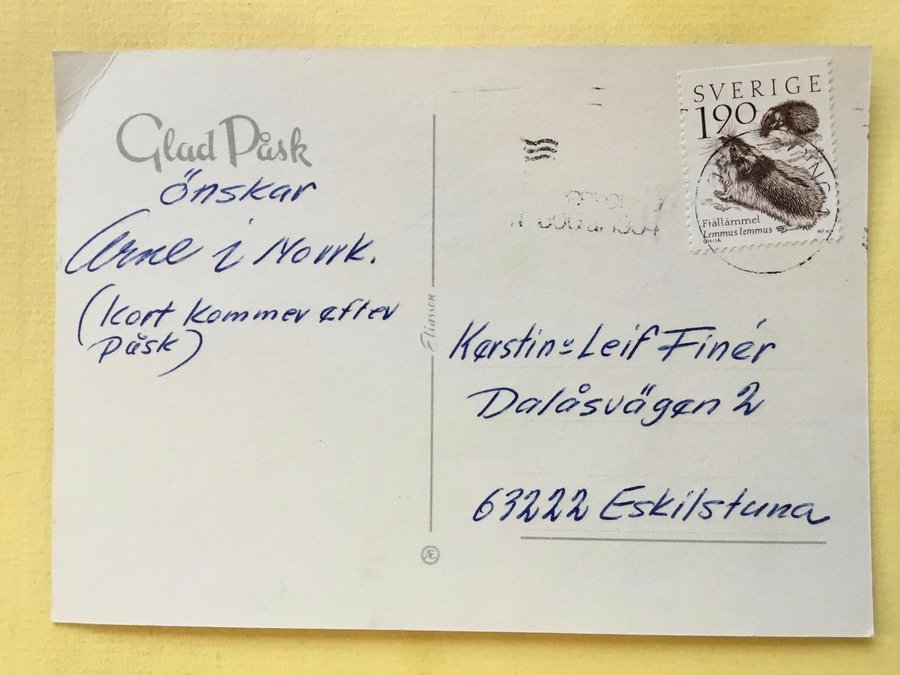 Glad Påsk
önskar
Arne i Norrk.
(Kort kommer efter
Påsk)
Eliasson
SVERIGE
190
Fjällämmel
Lemmus lemmus
Kerstin o Leif Finér
Dalåsvägen 2
63222 Eskilstuna
Æ